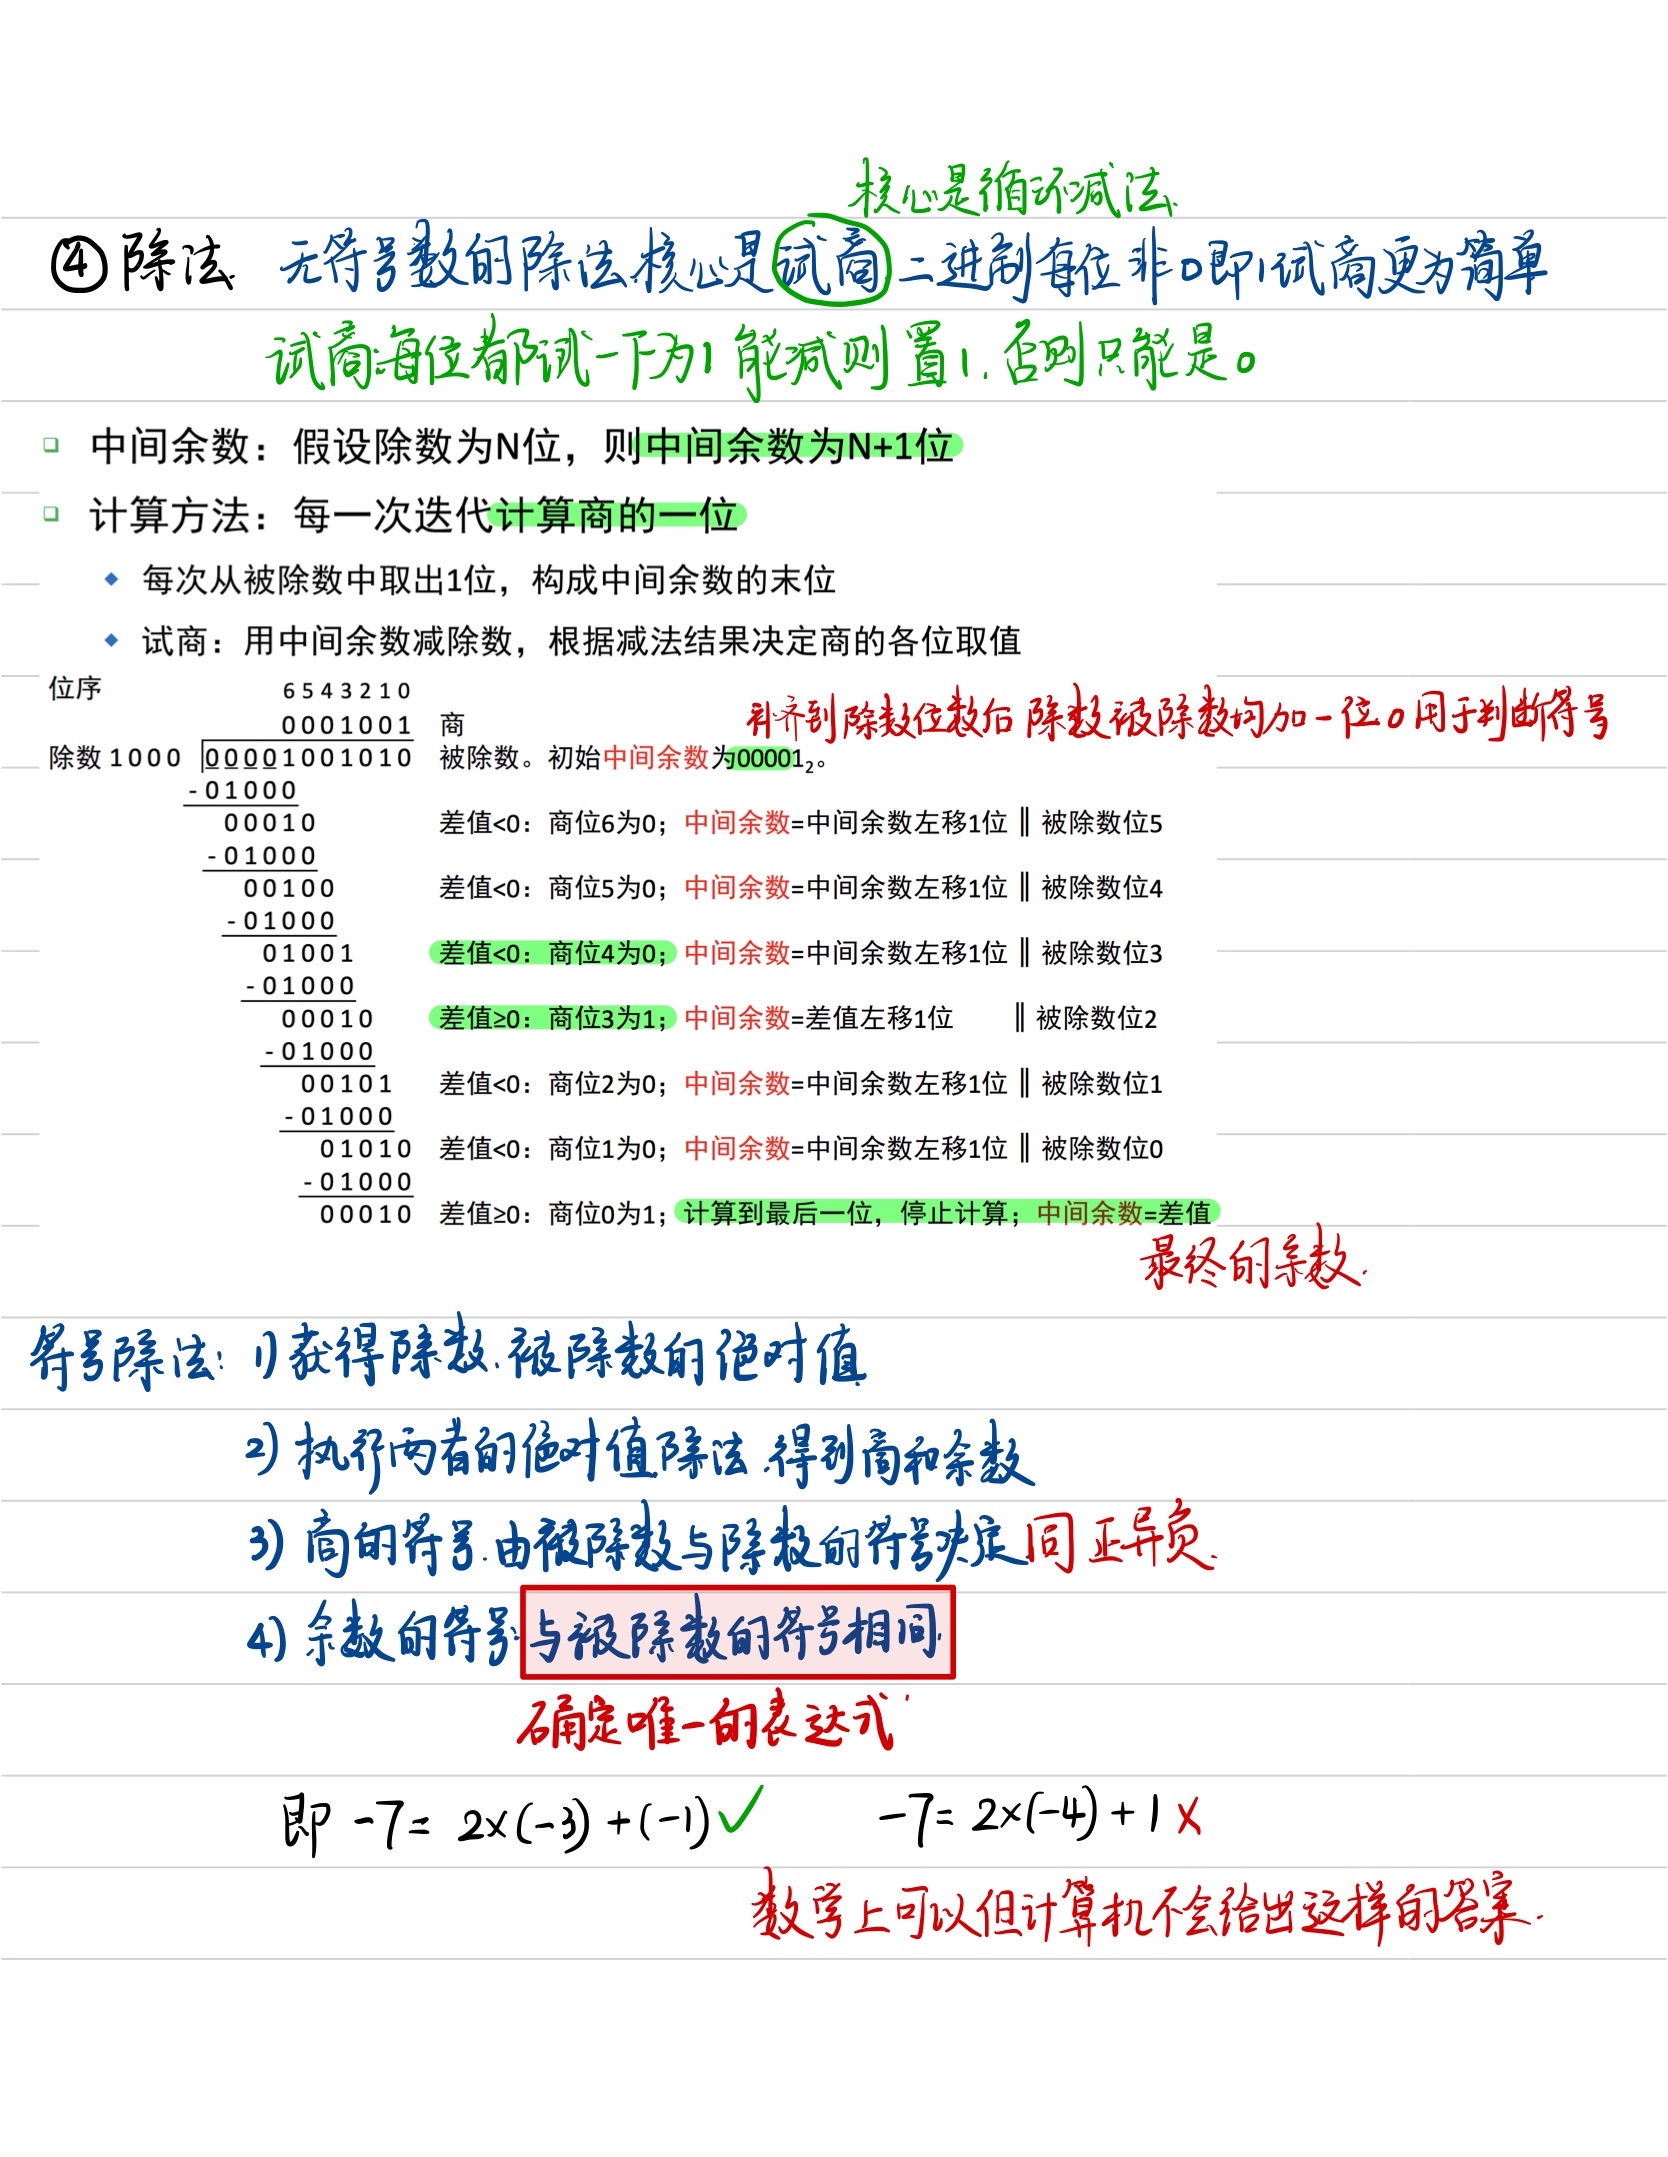 核心是循环减法.
④除法. 无符号数的除法.核心是试商 二进制每位非0即1试商更为简单
试商:每位都试一下为1能减则置1.否则只能是0
中间余数：假设除数为N位，则中间余数为N+1位
计算方法：每一次迭代计算商的一位
每次从被除数中取出1位，构成中间余数的末位
试商：用中间余数减除数，根据减法结果决定商的各位取值
位序 6543210
补齐到除数位数后 除数被除数均加一位0用于判断符号
0001001 商
除数1000 00001001010 被除数。初始中间余数为00001₂。
-01000
00010 差值<0：商位6为0；中间余数=中间余数左移1位 ‖ 被除数位5
-01000
00100 差值<0：商位5为0；中间余数=中间余数左移1位 ‖ 被除数位4
-01000
01001 差值<0：商位4为0；中间余数=中间余数左移1位 ‖ 被除数位3
-01000
00010 差值≥0：商位3为1；中间余数=差值左移1位 ‖ 被除数位2
-01000
00101 差值<0：商位2为0；中间余数=中间余数左移1位 ‖ 被除数位1
-01000
01010 差值<0：商位1为0；中间余数=中间余数左移1位 ‖ 被除数位0
-01000
00010 差值≥0：商位0为1；计算到最后一位，停止计算；中间余数=差值
最终的余数.
符号除法: 1)获得除数.被除数的绝对值
2) 执行两者的绝对值除法.得到商和余数
3) 商的符号.由被除数与除数的符号决定 同正异负.
4) 余数的符号:与被除数的符号相同.
确定唯一的表达式
即 -7= 2×(-3)+(-1)✓ -7= 2×(-4)+1 ×
数学上可以但计算机不会给出这样的答案.